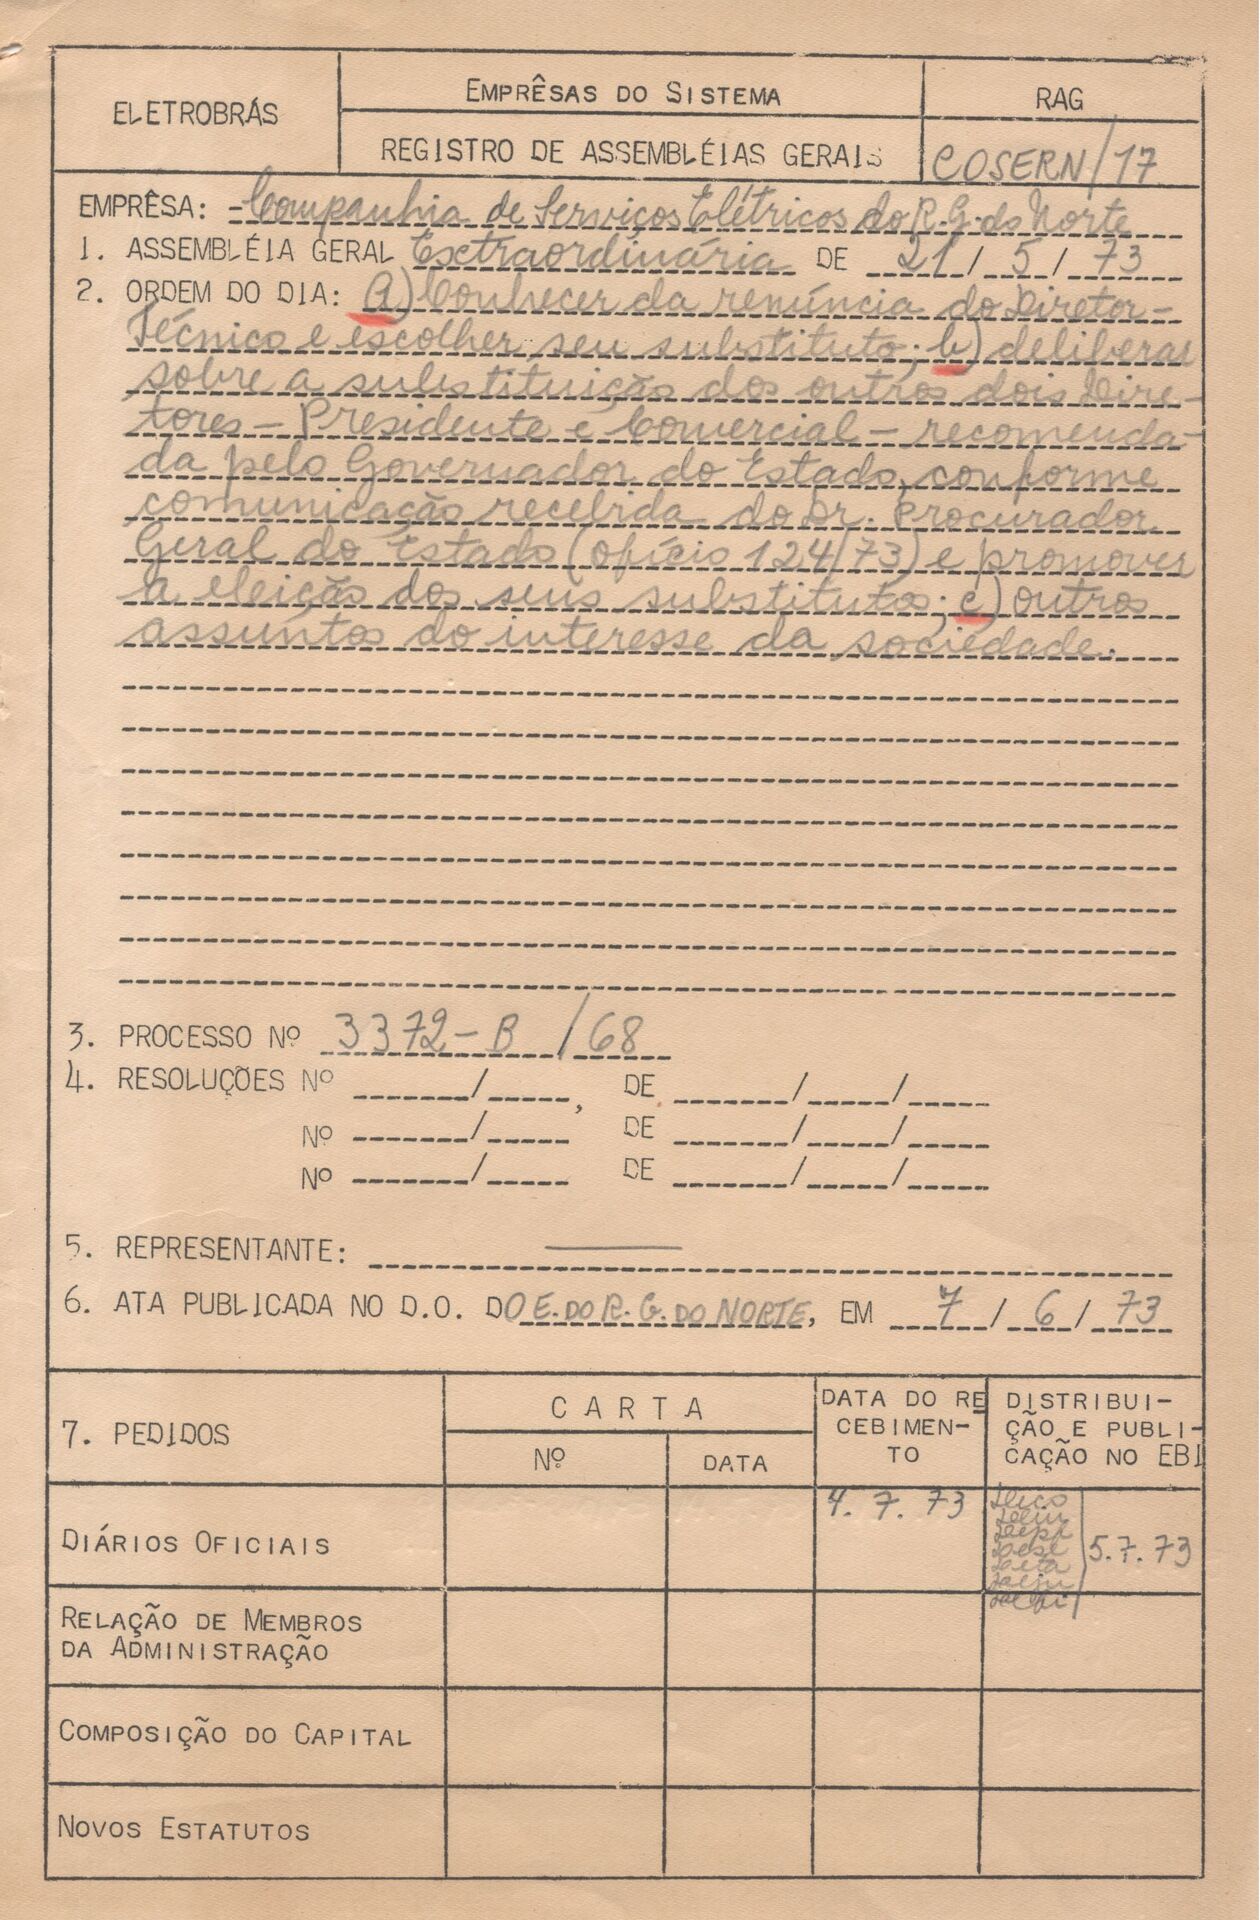 ELETROBRÁS
EMPRÊSAS DO SISTEMA
REGISTRO DE ASSEMBLÉIAS GERAIS
RAG
COSERN/17
EMPRÊSA: Companhia de Serviços Elétricos do R.G. do Norte
1. ASSEMBLÉIA GERAL Extraordinária DE 21/5/73
2. ORDEM DO DIA: A) Conhecer da renúncia do Diretor-
Técnico e escolher seu substituto; b) deliberar
sobre a substituição dos outros dois Dire-
tores - Presidente e Comercial - recomenda-
da pelo Governador do Estado, conforme
comunicação recebida do Dr. Procurador
Geral do Estado (ofício 124/73) e promover
a eleição dos seus substitutos; c) outros
assuntos do interesse da sociedade.
3. PROCESSO Nº 3372-B/68
4. RESOLUÇÕES Nº / , DE / /
Nº / DE / /
Nº / DE / /
5. REPRESENTANTE: —
6. ATA PUBLICADA NO D.O. DO E. DO R. G. DO NORTE, EM 7/6/73
7. PEDIDOS
CARTA
Nº
DATA
DATA DO RE
CEBIMEN-
TO
DISTRIBUI-
ÇÃO E PUBLI-
CAÇÃO NO EBI
DIÁRIOS OFICIAIS
4.7.73
5.7.73
RELAÇÃO DE MEMBROS
DA ADMINISTRAÇÃO
COMPOSIÇÃO DO CAPITAL
NOVOS ESTATUTOS